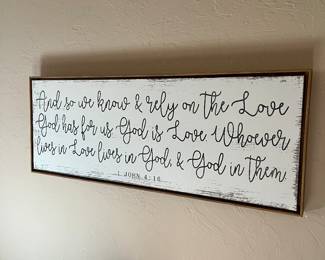 And so we know & rely on the Love
God has for us. God is Love. Whoever
lives in Love lives in God, & God in them.
1 JOHN 4:16